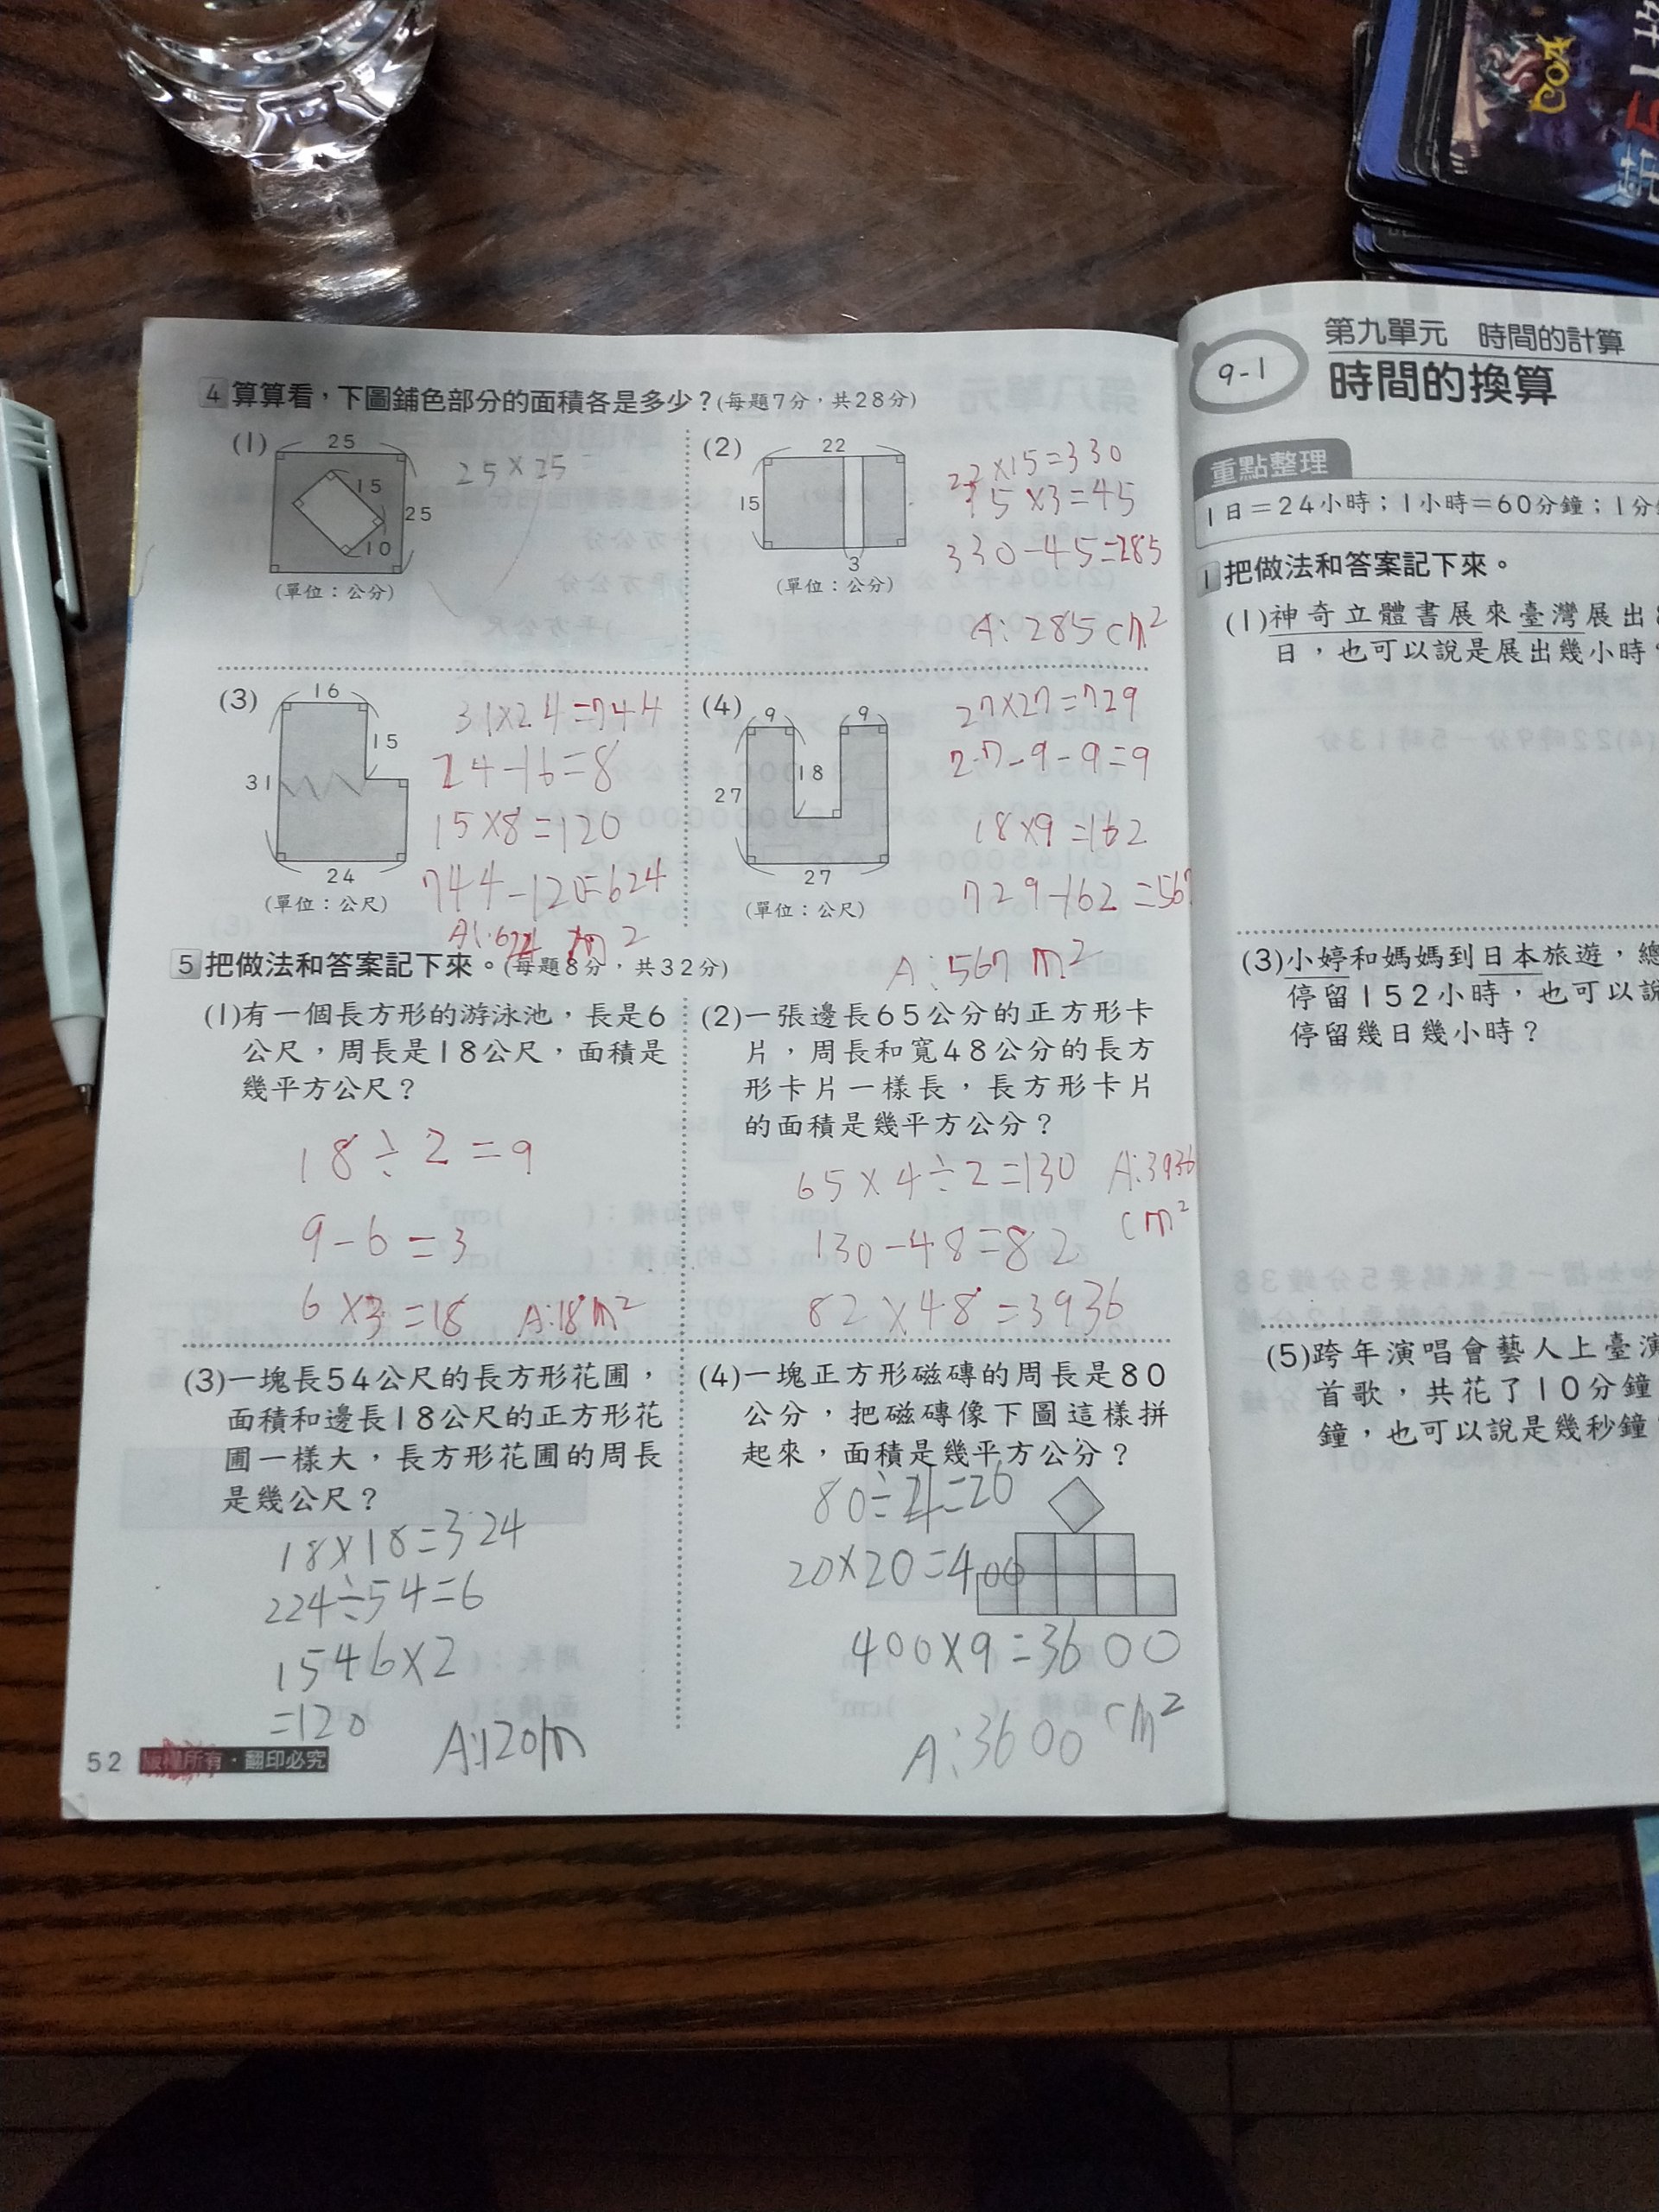 4 算算看，下圖鋪色部分的面積各是多少？(每題7分，共28分)
(1)
25
15
25
10
(單位：公分)
25×25
(2)
22
15
3
(單位：公分)
22×15=330
15×3=45
330-45=285
A:285cm²
(3)
16
15
31
24
(單位：公尺)
31×24=744
24-16=8
15×8=120
744-120=624
A:624 m²
(4)
9
9
18
27
27
(單位：公尺)
27×27=729
27-9-9=9
18×9=162
729-162=567
A:567m²
5 把做法和答案記下來。(每題8分，共32分)
(1)有一個長方形的游泳池，長是6
公尺，周長是18公尺，面積是
幾平方公尺？
18÷2=9
9-6=3
6×3=18 A:18m²
(2)一張邊長65公分的正方形卡
片，周長和寬48公分的長方
形卡片一樣長，長方形卡片
的面積是幾平方公分？
65×4÷2=130
130-48=82
82×48=3936
A:3936
cm²
(3)一塊長54公尺的長方形花圃，
面積和邊長18公尺的正方形花
圃一樣大，長方形花圃的周長
是幾公尺？
18×18=324
224÷54=6
1546×2
=120
A:120m
(4)一塊正方形磁磚的周長是80
公分，把磁磚像下圖這樣拼
起來，面積是幾平方公分？
80÷4=20
20×20=400
400×9=3600
A:3600cm²
52 版權所有·翻印必究
9-1
第九單元 時間的計算
時間的換算
重點整理
1日＝24小時；1小時＝60分鐘；1分
1 把做法和答案記下來。
(1)神奇立體書展來臺灣展出
日，也可以說是展出幾小時
(3)小婷和媽媽到日本旅遊，總
停留152小時，也可以說
停留幾日幾小時？
(5)跨年演唱會藝人上臺演
首歌，共花了10分鐘
鐘，也可以說是幾秒鐘